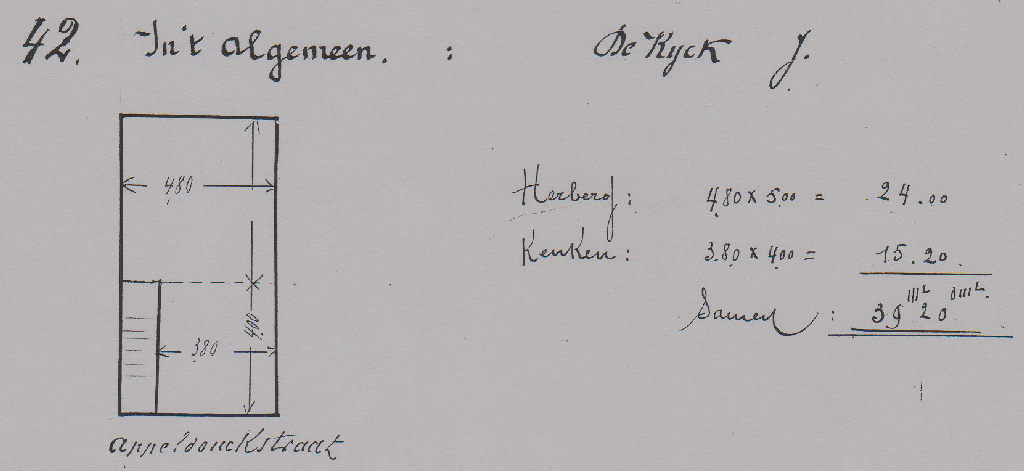 42. In't algemeen. : De Kyck J.
480
Herberg: 4.80 x 5.00 = 24.00
Keuken: 3.80 x 4.00 = 15.20.
Samen: 39 m² 20 dm².
400
380
appeldonckstraat